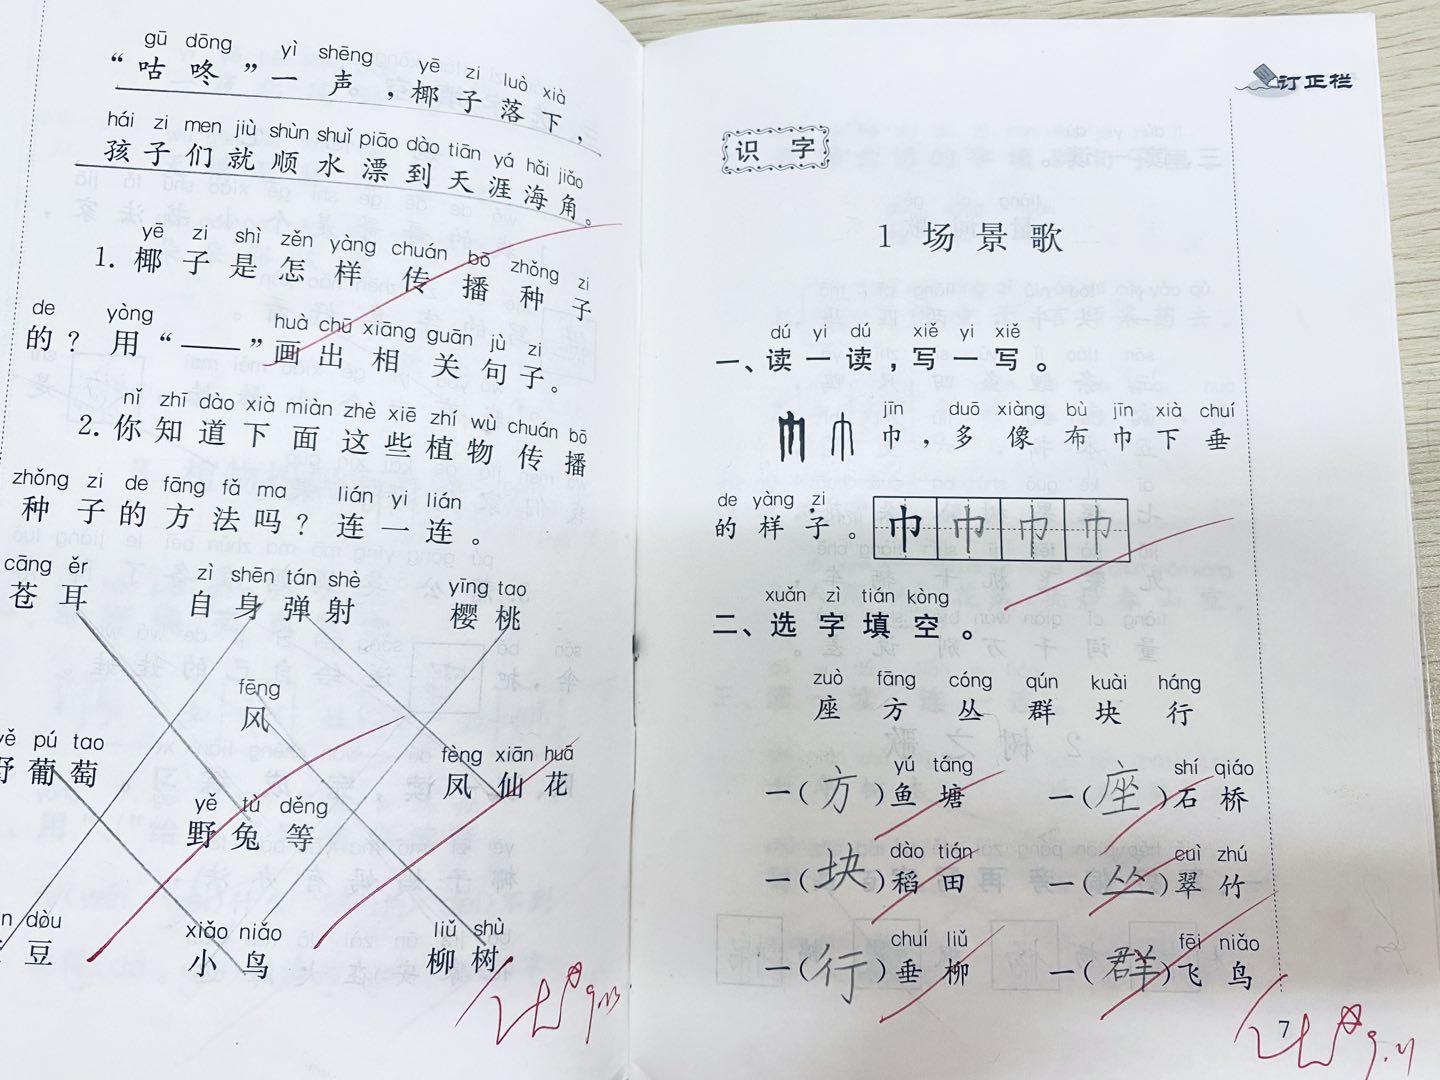 gū dōng yì shēng yē zi luò xià
“咕咚”一声，椰子落下，
hái zi men jiù shùn shuǐ piāo dào tiān yá hǎi jiǎo
孩子们就顺水漂到天涯海角。
yē zi shì zěn yàng chuán bō zhǒng zi
1. 椰子是怎样传播种子
de yòng huà chū xiāng guān jù zi
的？用“——”画出相关句子。
nǐ zhī dào xià miàn zhè xiē zhí wù chuán bō
2. 你知道下面这些植物传播
zhǒng zi de fāng fǎ ma lián yi lián
种子的方法吗？连一连。
cāng ěr zì shēn tán shè yīng tao
苍耳 自身弹射 樱桃
fēng
风
pú tao fèng xiān huā
葡萄 凤仙花
yě tù děng
野兔等
dòu xiǎo niǎo liǔ shù
豆 小鸟 柳树
9.23
订正栏
识字
1 场景歌
dú yi dú xiě yi xiě
一、读一读，写一写。
jīn duō xiàng bù jīn xià chuí
巾，多像布巾下垂
de yàng zi
的样子。巾 巾 巾 巾
xuǎn zì tián kòng
二、选字填空。
zuò fāng cóng qún kuài háng
座 方 丛 群 块 行
yú táng shí qiáo
一（方）鱼塘 一（座）石桥
dào tián cuì zhú
一（块）稻田 一（丛）翠竹
chuí liǔ fēi niǎo
一（行）垂柳 一（群）飞鸟
7
9.21